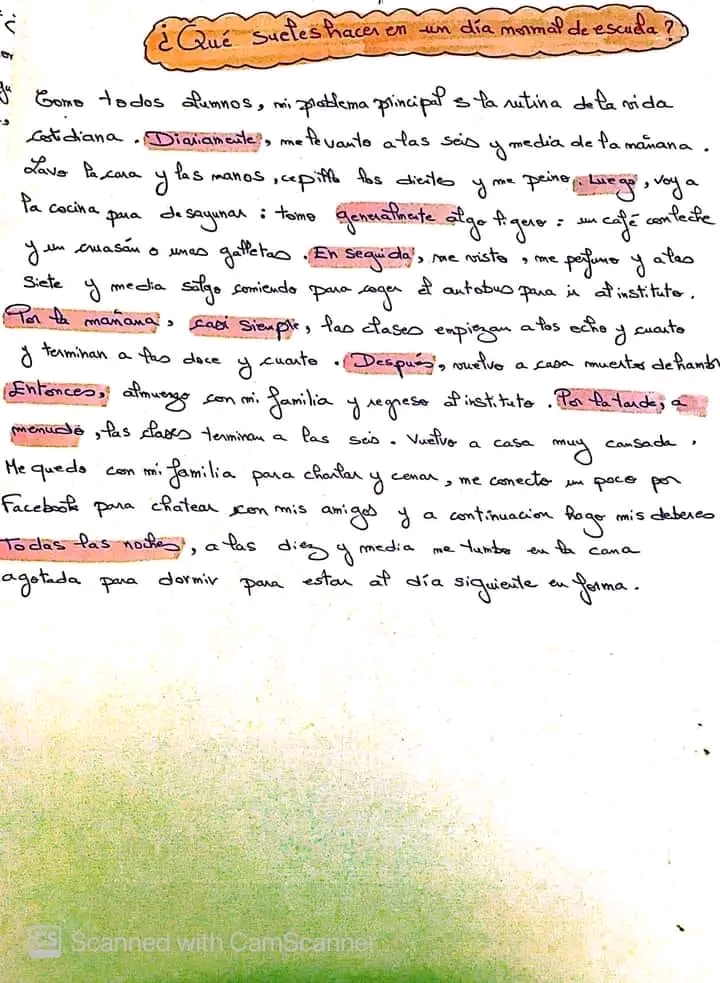 ¿Qué sueles hacer en un día normal de escuela?
Como todos alumnos, mi problema principal s la rutina de la vida
cotidiana. Diariamente, me levanto a las seis y media de la mañana.
Lavo la cara y las manos, cepillo los dientes y me peino. Luego, voy a
la cocina para desayunar: tomo generalmente algo ligero: un café con leche
y un cruasán o unas galletas. En seguida, me visto, me perfumo y a las
siete y media salgo corriendo para coger el autobus para ir al instituto.
Por la mañana, casi siempre, las clases empiezan a las ocho y cuarto
y terminan a las doce y cuarto. Después, vuelvo a casa muertos de hambr
Entonces, almuerzo con mi familia y regreso al instituto. Por la tarde, a
menudo, las clases terminan a las seis. Vuelvo a casa muy cansada.
Me quedo con mi familia para charlar y cenar, me conecto un poco por
Facebook para chatear con mis amigos y a continuacion hago mis deberes
Todas las noches, a las diez y media me tumbo en la cama
agotada para dormir para estar al día siguiente en forma.
CS Scanned with CamScanner